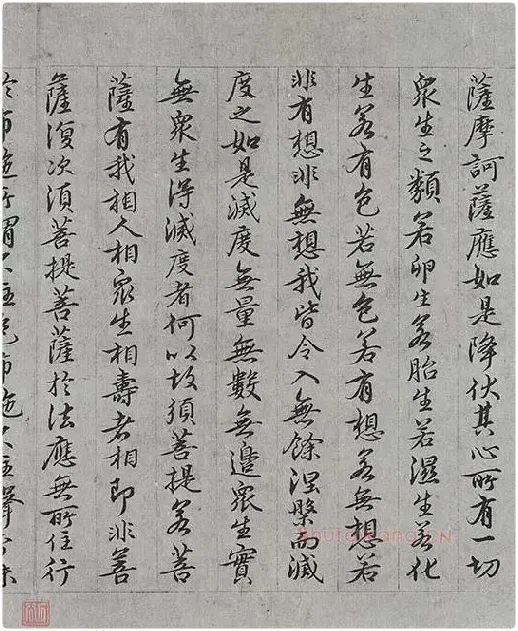 薩摩訶薩應如是降伏其心所有一切
衆生之類若卵生若胎生若濕生若化
生若有色若無色若有想若無想若
非有想非無想我皆令入無餘涅槃而滅
度之如是滅度無量無數無邊衆生實
無衆生得滅度者何以故須菩提若菩
薩有我相人相衆生相壽者相即非菩
薩復次須菩提菩薩於法應無所住行
於布施所謂不住色布施不住聲